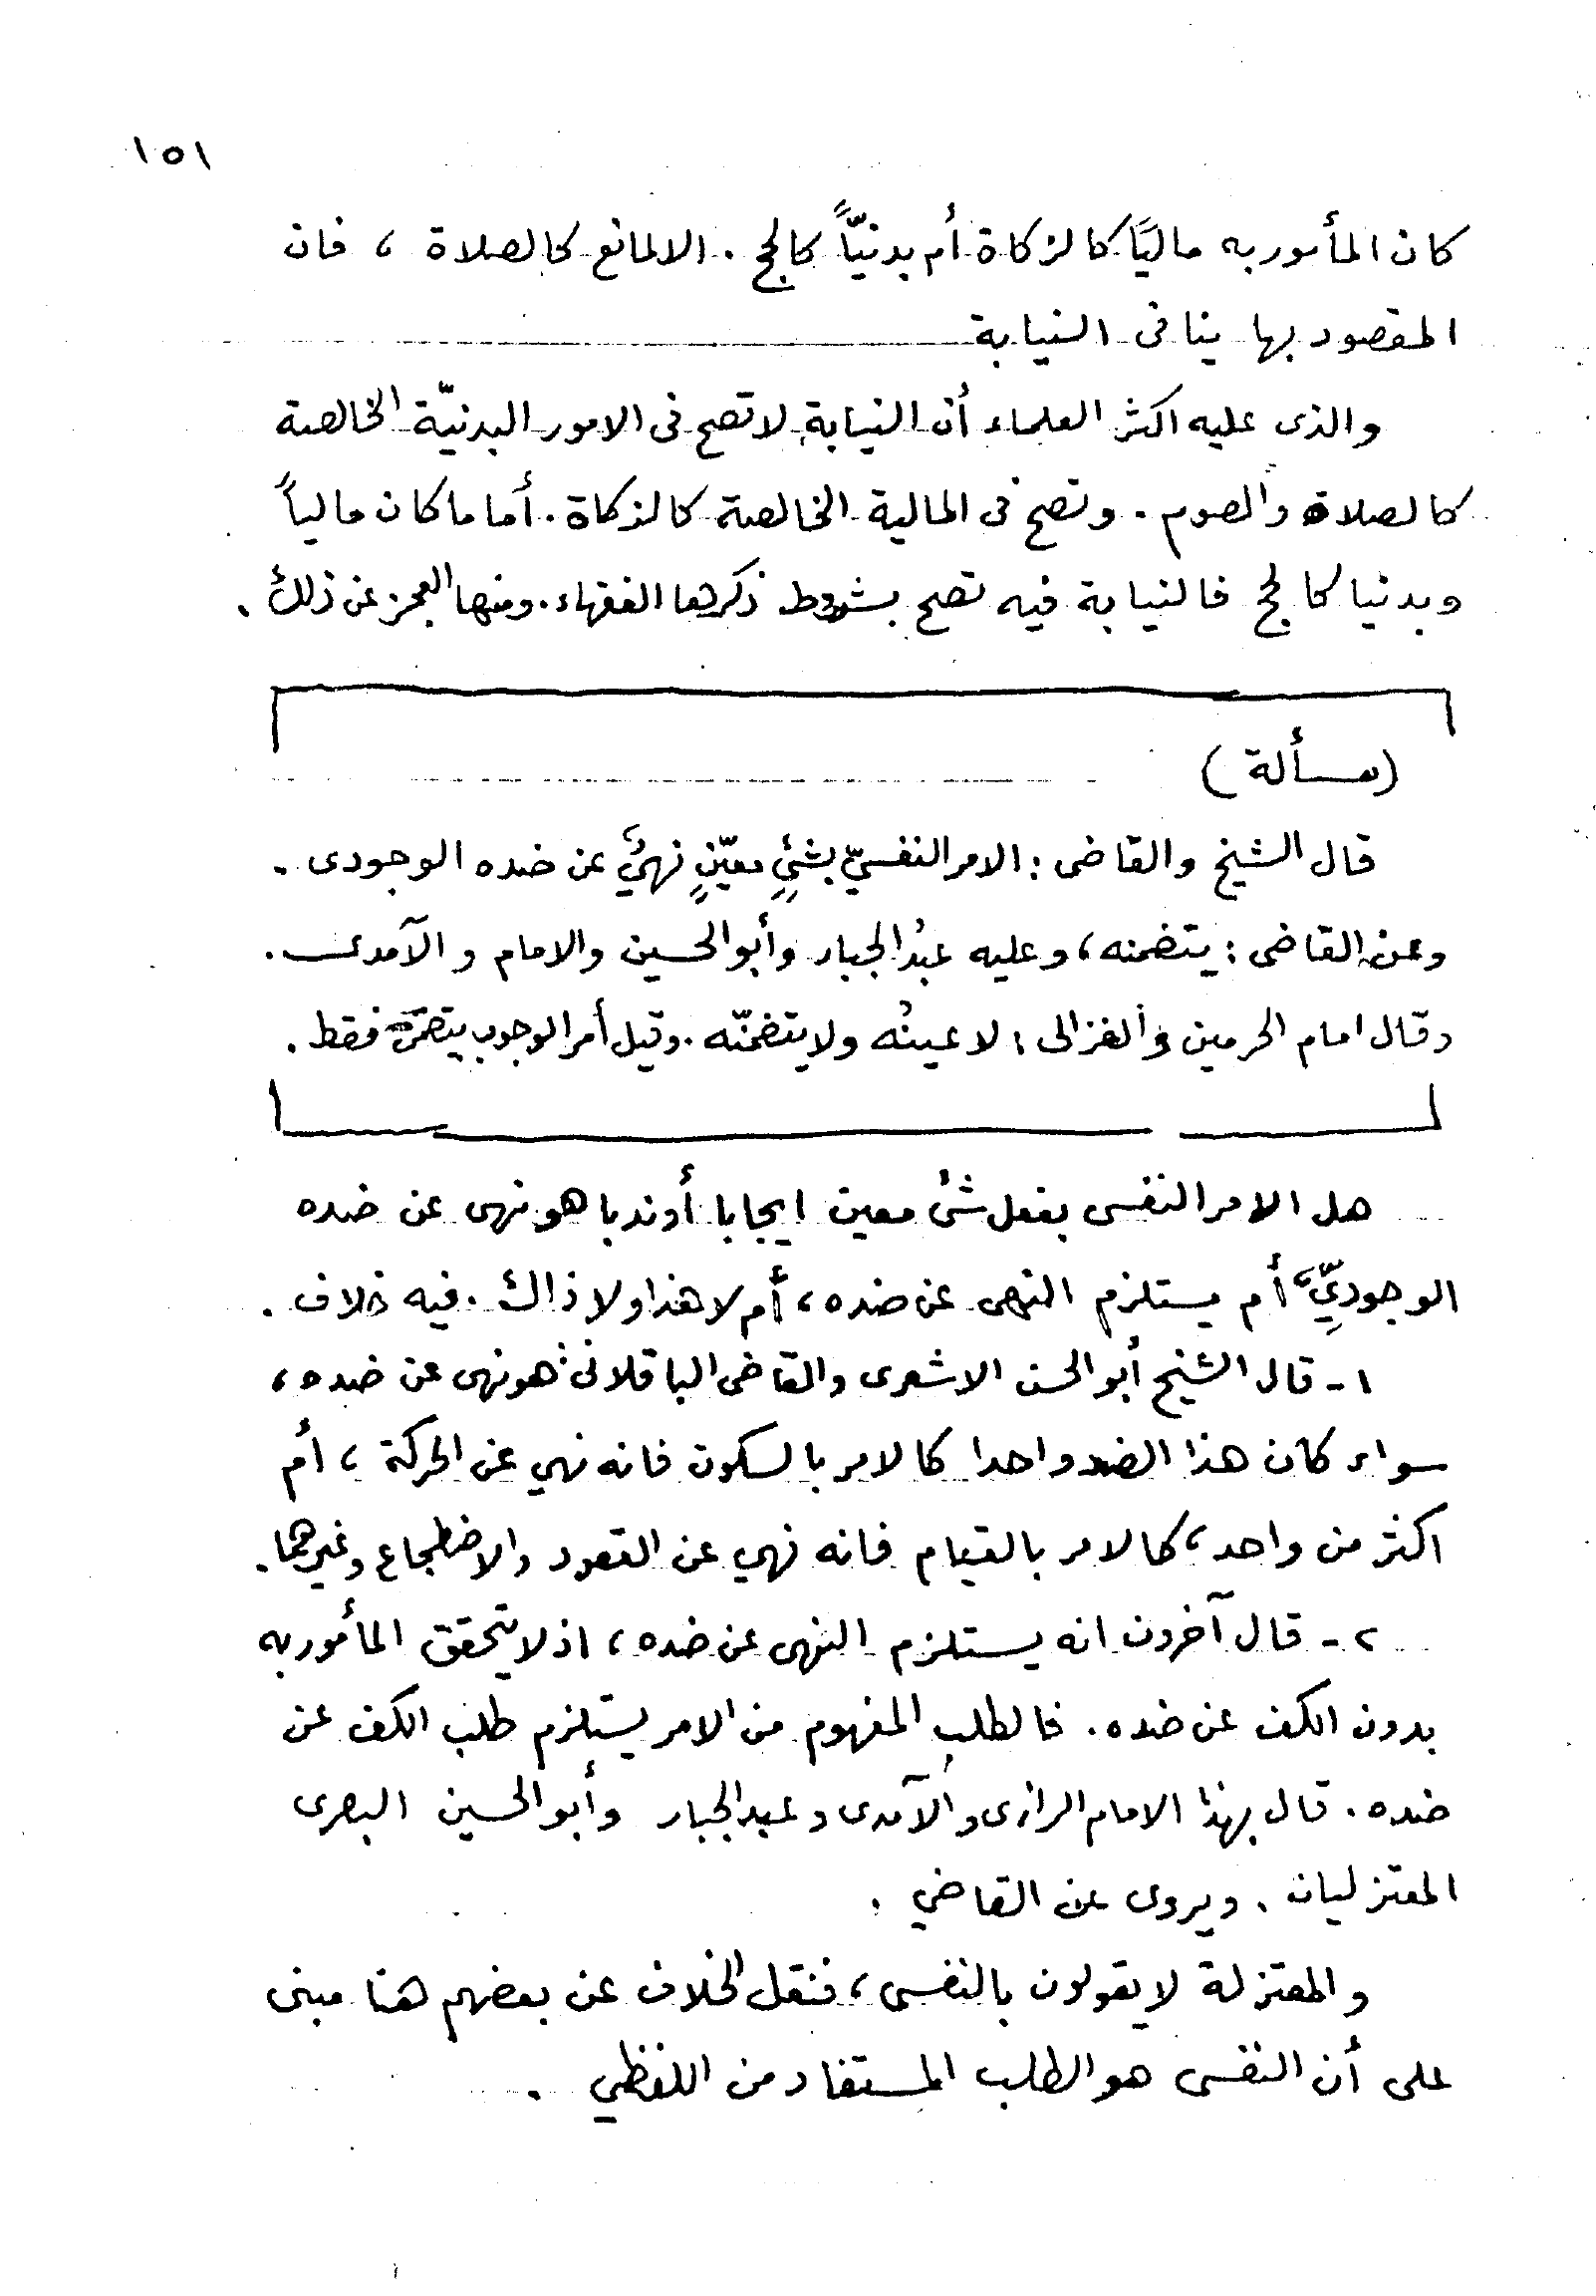 ١٥١
كان المأمور به ماليًا كالزكاة أم بدنيّاً كالحج . الا لمانع كالصلاة ، فان
المقصود بها ينافى النيابة
والذى عليه اكثر العلماء أن النيابة لا تصح فى الامور البدنيّة الخالصة
كالصلاة والصوم . وتصح فى المالية الخالصة كالزكاة . أما ما كان مالياً
وبدنيا كالحج فالنيابة فيه تصح بشروط ذكرها الفقهاء . ومنها العجز عن ذلك .
(مسألة)
قال الشيخ والقاضى : الامر النفسيّ بشئٍ معيّنٍ نهيٌ عن ضده الوجودى .
وعن القاضى : يتضمنه ، وعليه عبدُ الجبار وأبو الحسين والامام والآمدى .
وقال امام الحرمين والغزالى : لا عينُه ولا يتضمنّه . وقيل أمر الوجوب يتضمّنه فقط .
هل الامر النفسى بفعل شئ معين ايجابا أو ندبا هو نهى عن ضده
الوجوديِّ ، أم يستلزم النهى عن ضده ، أم لا هذا ولا ذاك . فيه خلاف .
١ - قال الشيخ أبو الحسن الاشعرى والقاضى الباقلانى : هو نهى عن ضده ،
سواء كان هذا الضد واحدا كالامر بالسكون فانه نهي عن الحركة ، أم
اكثر من واحد ، كالامر بالقيام فانه نهي عن القعود والاضطجاع وغيرهما .
٢ - قال آخرون انه يستلزم النهى عن ضده ، اذ لا يتحقق المأمور به
بدون الكف عن ضده . فالطلب المفهوم من الامر يستلزم طلب الكف عن
ضده . قال بهذا الامام الرازى والآمدى وعبد الجبار وأبو الحسين البصرى
المعتزليان . ويروى عن القاضي .
والمعتزلة لا يقولون بالنفسى ، فنقل الخلاف عن بعضهم هنا مبنى
على أن النفسى هو الطلب المستفاد من اللفظي .